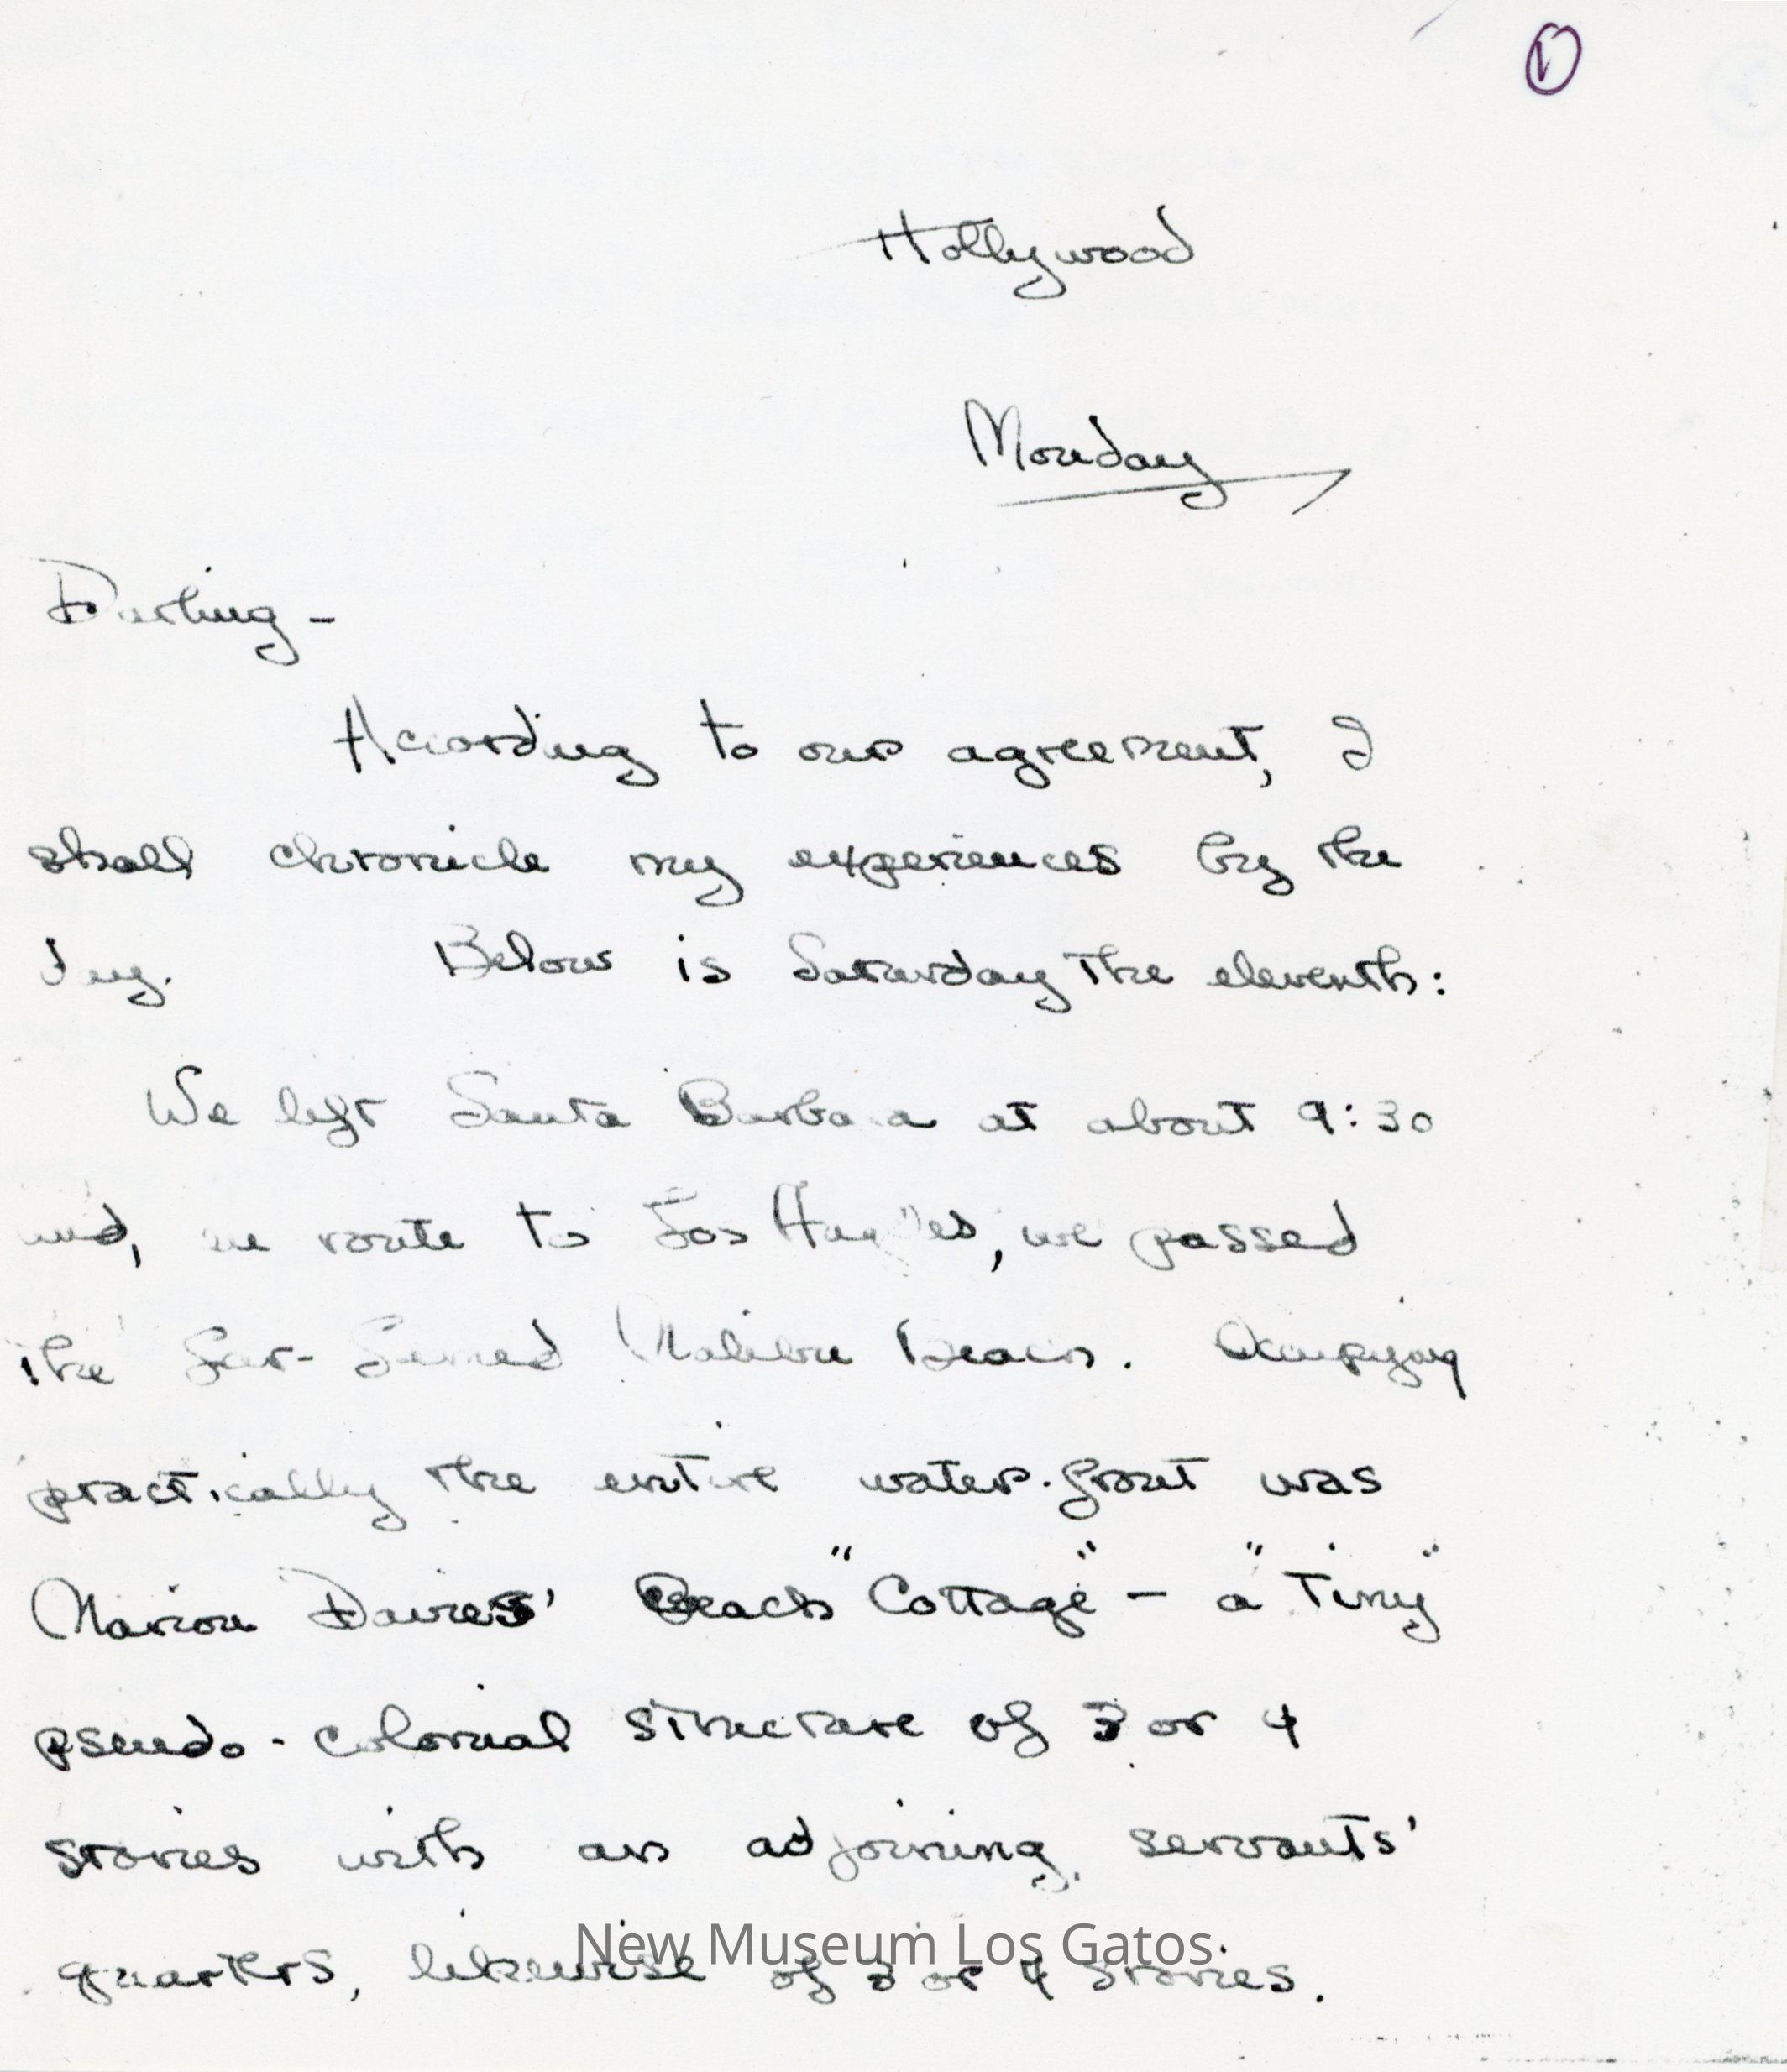 1
Hollywood
Monday
Darling -
According to our agreement, I
shall chronicle my experiences by the
day. Below is Saturday the eleventh:
We left Santa Barbara at about 9:30
and, en route to Los Angeles, we passed
the far-famed Malibu Beach. Occupying
practically the entire water-front was
Marion Davies' Beach "Cottage" - a "Tiny"
pseudo-colonial structure of 3 or 4
stories with an adjoining servants'
quarters, likewise of 3 or 4 stories.
New Museum Los Gatos